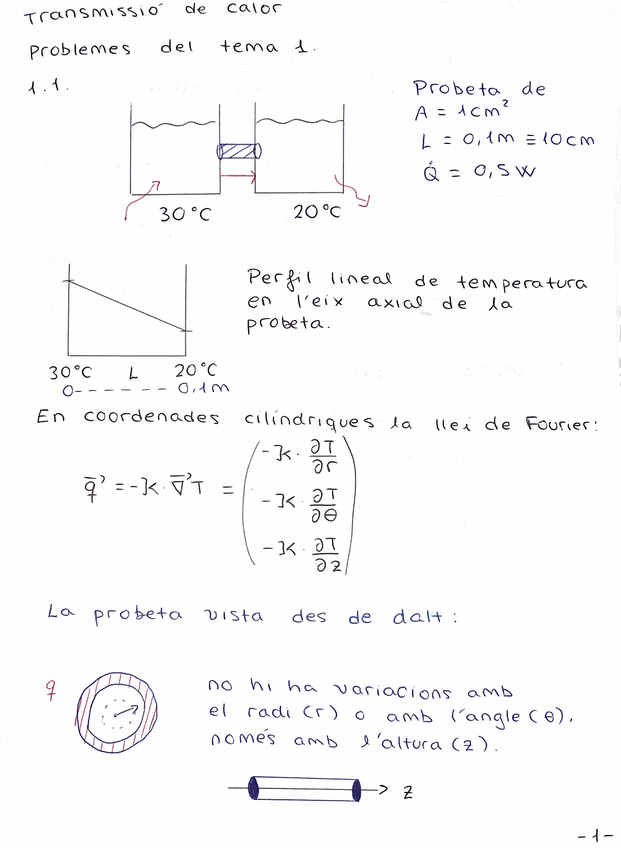 Transmissió de calor
Problemes del tema 1.
1.1.
Probeta de
A = 1cm²
L = 0,1m ≡ 10cm
Q̇ = 0,5W
30°C
20°C
Perfil lineal de temperatura
en l'eix axial de la
probeta.
30°C L 20°C
0------ 0,1m
En coordenades cilíndriques la llei de Fourier:
q̄' = -k · ∇̄'T = ( -k · ∂T/∂r
-k · ∂T/∂θ
-k · ∂T/∂z )
La probeta vista des de dalt:
q
no hi ha variacions amb
el radi (r) o amb l'angle (θ),
només amb l'altura (z).
z
-1-